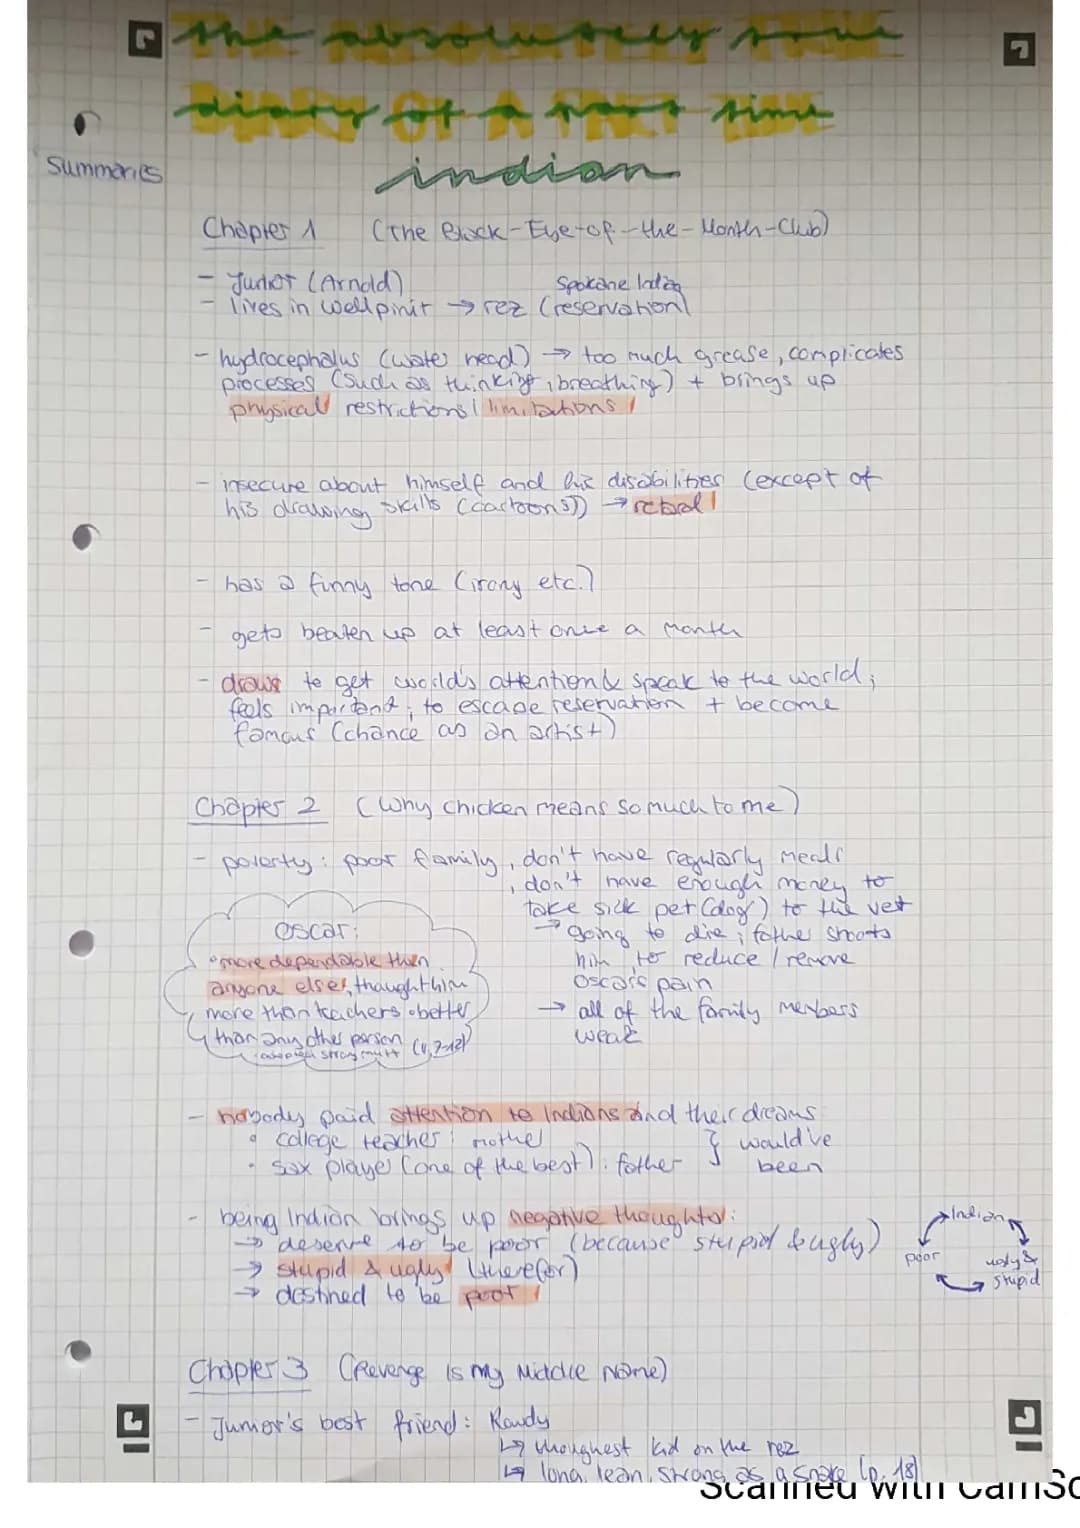 the absolutely true
diary of a part time
indian
Summaries
Chapter 1 (The Black-Eye-of-the-Month-Club)
- Junior (Arnold)
Spokane Indian
- lives in Wellpinit → rez (reservation)
- hydrocephalus (water head) → too much grease, complicates
processes (such as thinking, breathing) + brings up
physical restrictions / limitations!
- insecure about himself and his disabilities (except of
his drawing skills (cartoons)) → retard!
- has a funny tone (irony etc.)
- gets beaten up at least once a month
- draws to get world's attention & speak to the world;
feels important; to escape reservation + become
famous (chance as an artist)
Chapter 2 (Why chicken means so much to me)
- poverty: poor family, don't have regularly meals
, don't have enough money to
take sick pet (dog) to the vet
→ going to die; father shoots
him to reduce / remove
Oscar's pain
→ all of the family members
weak
Oscar:
• more dependable than
anyone else, thaught him
more than teachers • better
than any other person
• adopted stray mutt
- nobody paid attention to Indians and their dreams:
• college teacher: mother
• sax player (one of the best): father } would've
been
- being Indian brings up negative thoughts:
→ deserve to be poor (because stupid & ugly)
→ stupid & ugly (therefor)
→ destined to be poor!
Indian
poor
ugly &
stupid
Chapter 3 (Revenge is my Middle Name)
- Junior's best friend: Rowdy
↳ thoughest kid on the rez
↳ long, lean, strong as a snake (p. 18)
Scanned with CamSc